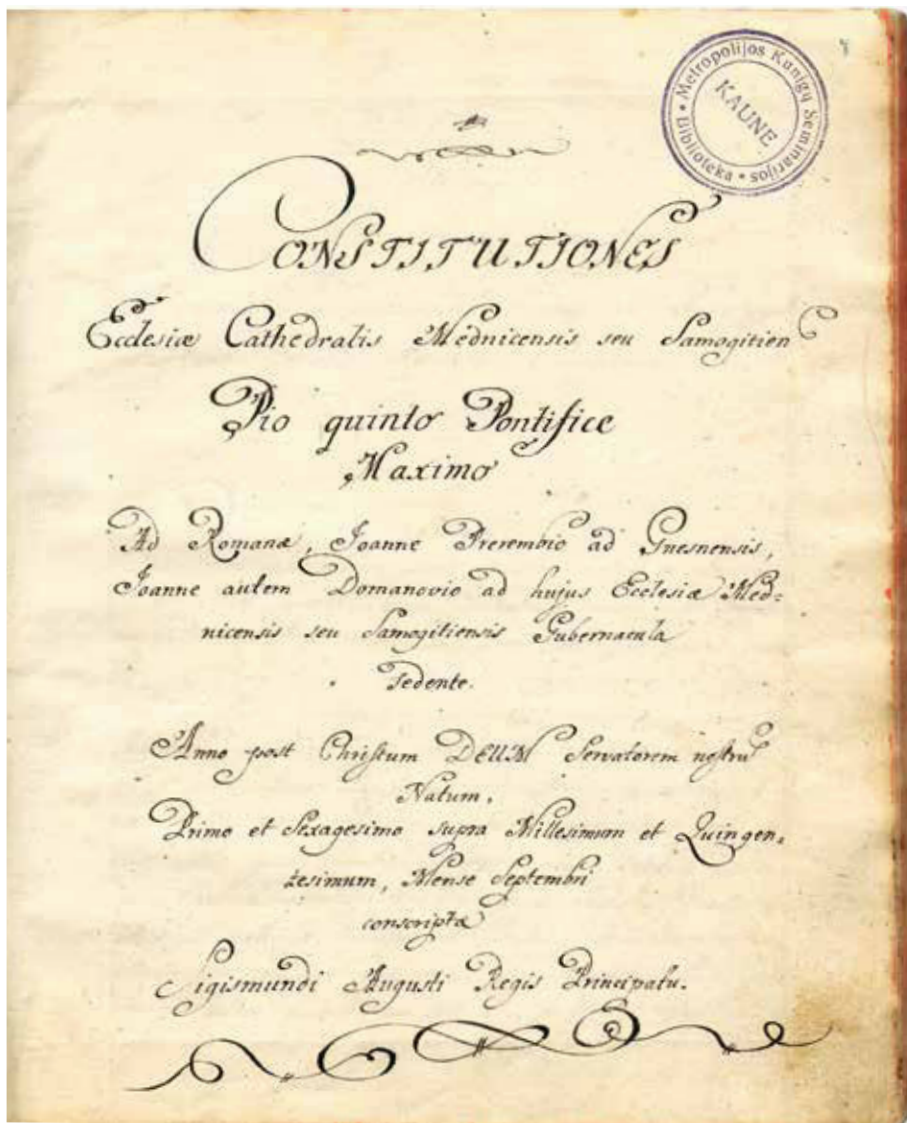 Metropolijos Kunigų Seminarijos • Biblioteka •
KAUNE
CONSTITUTIONES
Ecclesiæ Cathedralis Mednicensis seu Samogitien
Pio quinto Pontifice
Maximo
Ad Romanæ, Joanne Prerembio ad Gnesnensis,
Joanne autem Domanovio ad hujus Ecclesiæ Med=
nicensis seu Samogitiensis Gubernacula
Sedente.
Anno post Christum DEUM Servatorem nostrū
Natum,
Primo et Sexagesimo supra Millesimum et Quingen=
tesimum, Mense Septembri
conscriptæ
Sigismundi Augusti Regis Principatu.